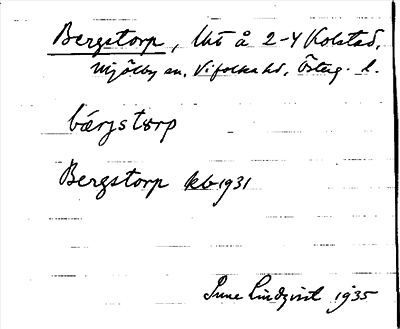 Bergstorp, Lht å 2-4 Kolstad,
Mjölby sn, Vifolka hd, Österg. l.
bærjstorp
Bergstorp kb 1931
Sune Lindqvist 1935